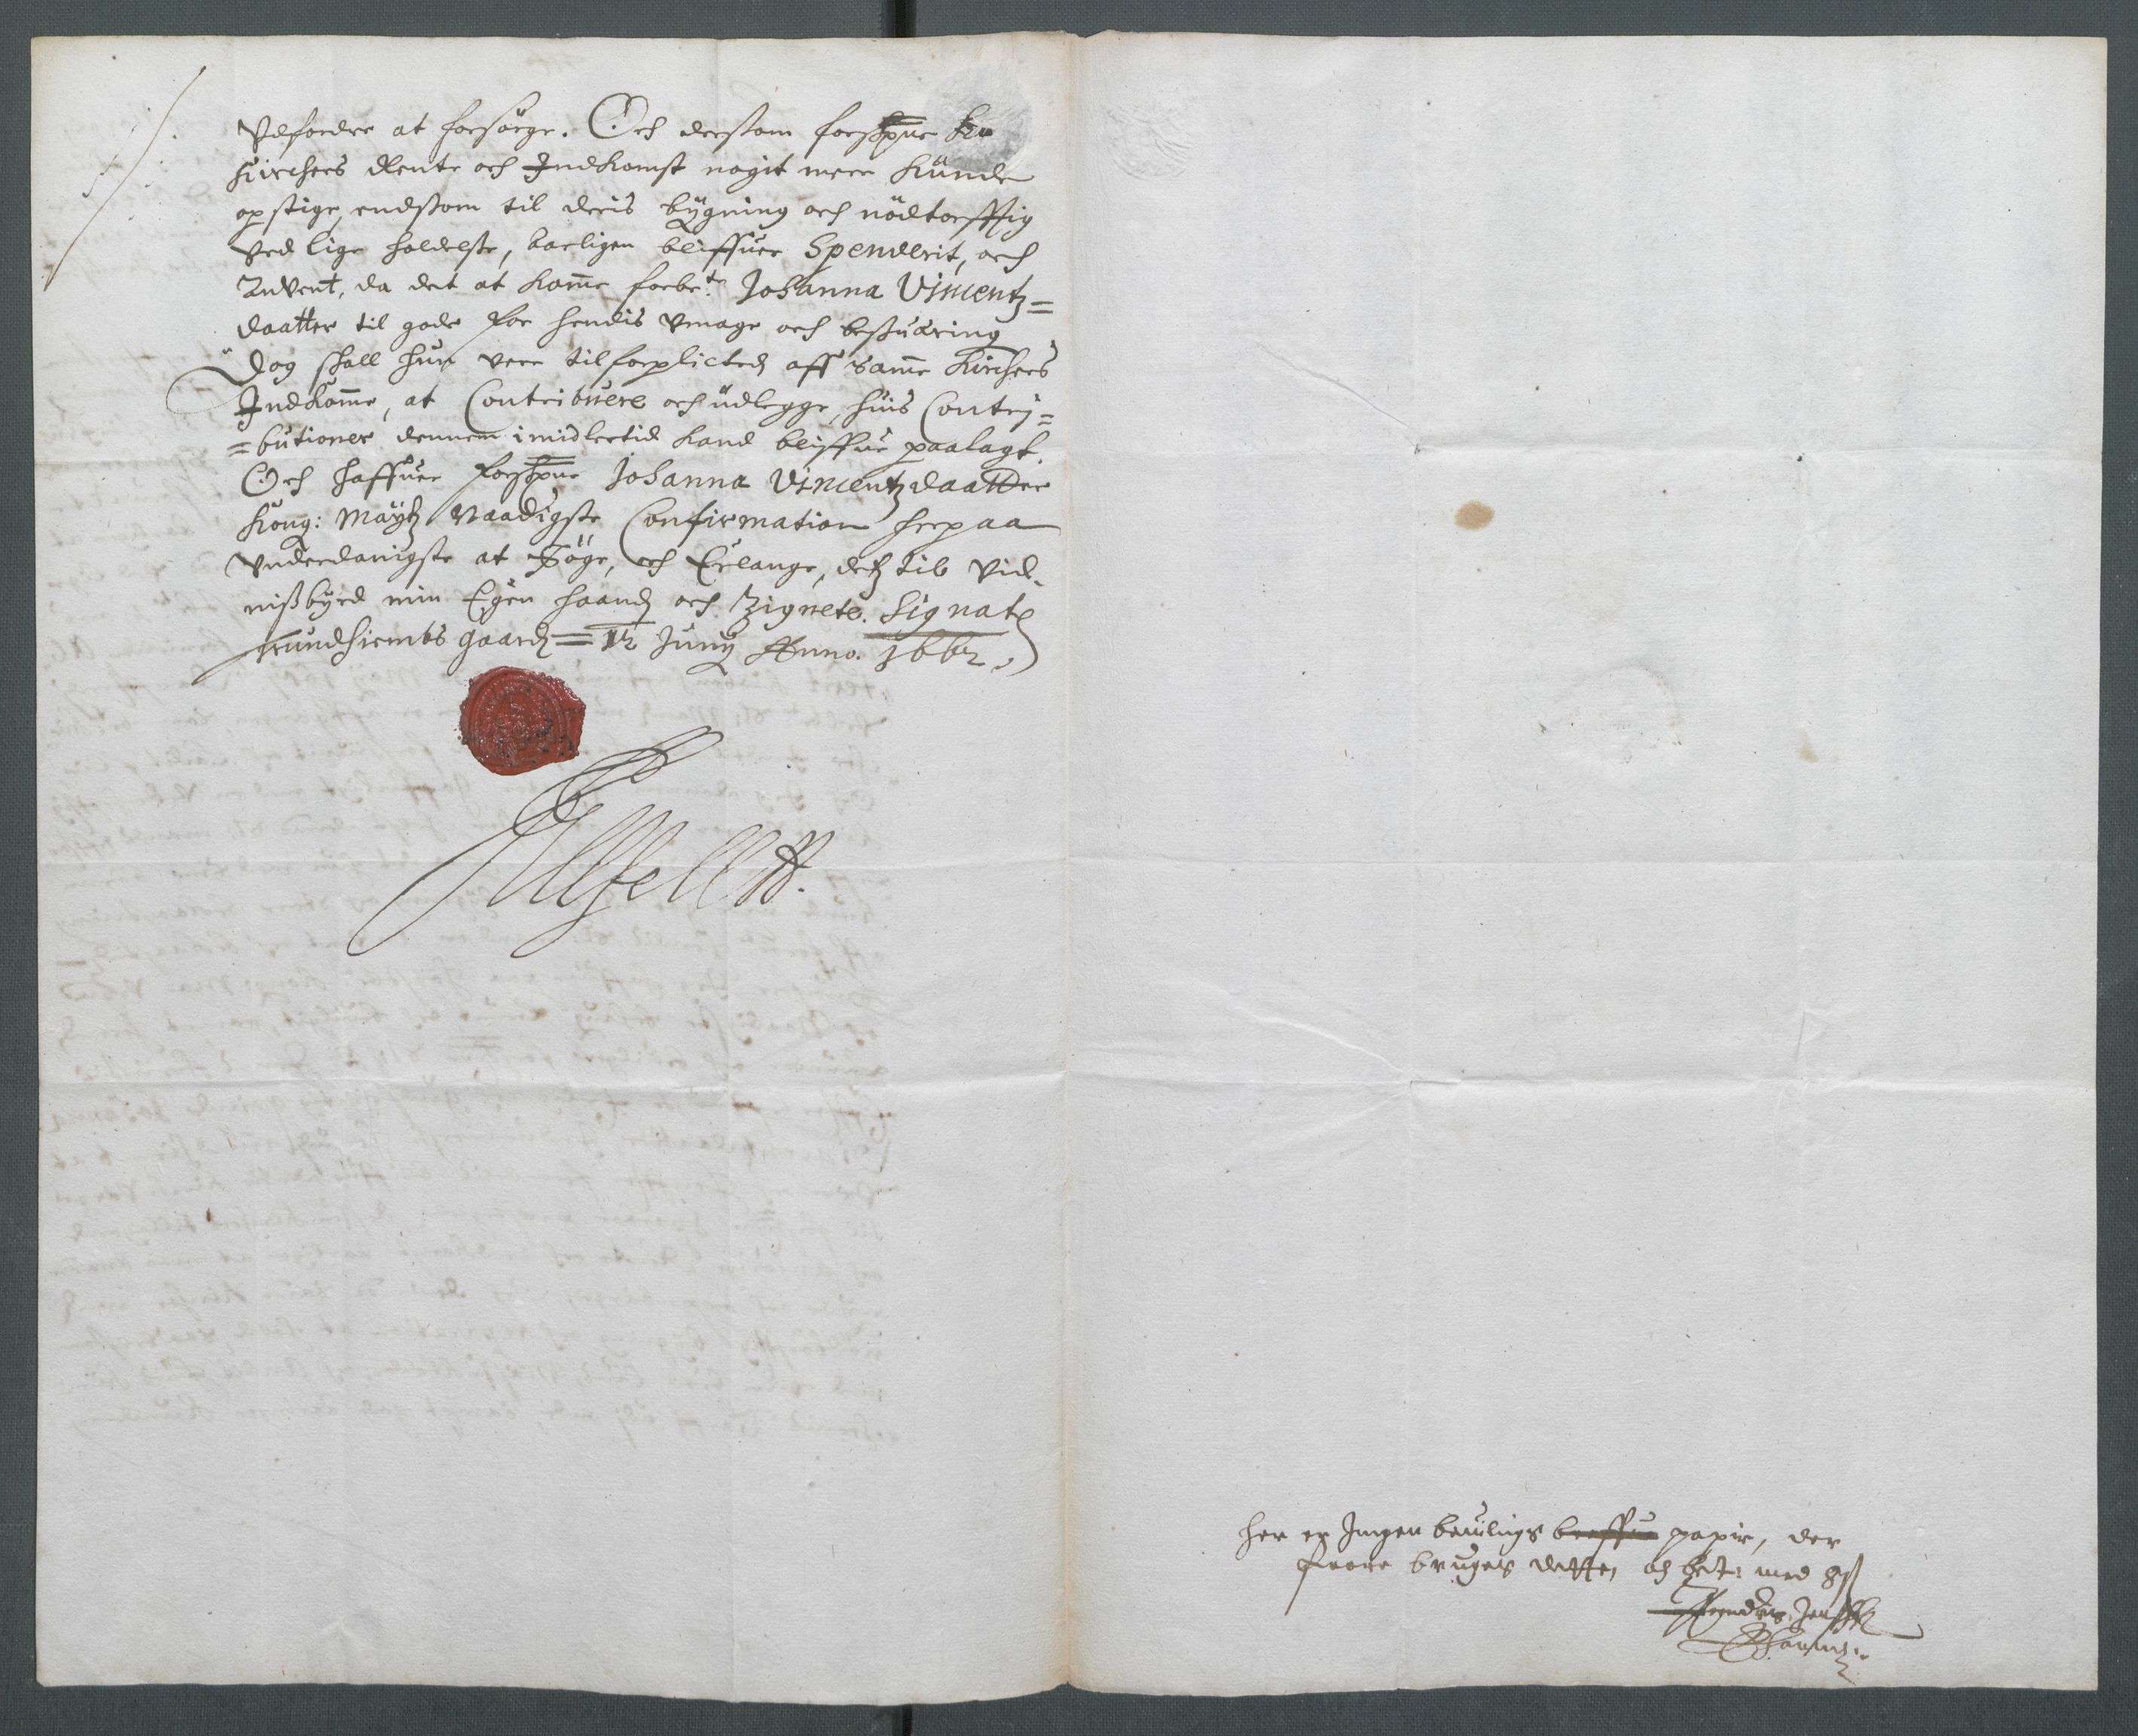 Udfordre at forsörge. Och dersom forschreffne
Kirchers Rente och Indkomst nogit mere Kunde
opstige, endsom til deris bÿgning och nödtorfftig
ved lige holdelse, aarligen bliffuer Spenderit, och
Anvent, da det at komme forbe.te Johanna Vincentz=
daatter til gode for hendis Umage och besuæring
Dog skall hun vere tilforplicted aff samme Kirchers
Indkomme, at Contribuere och udlegge, huis Contri=
=butioner dennem imidlertid kand bliffue paalagt.
Och haffuer forschne Johanna Vincentzdaatter
Kong: Maÿtz Naadigste Confirmation herpaa
Underdanigste at Söge, och Erlange, detz til Vid-
nißbÿrd min Egen haand och Zignete. Signatum
Trundhiembs gaard = 12 Junÿ Anno. 1662.
her er Ingen beuilings papir, der
faare bruges dette, och bet: med